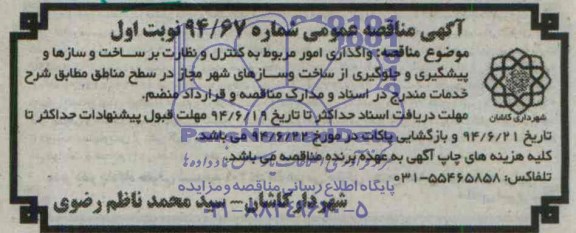 آگهی مناقصه عمومی شماره ۹۴/۶۷ نوبت اول
موضوع مناقصه: واگذاری امور مربوط به کنترل و نظارت بر ساخت و سازها و
پیشگیری و جلوگیری از ساخت وسازهای شهر مجاز در سطح مناطق مطابق شرح
خدمات مندرج در اسناد و مدارک مناقصه و قرارداد منضم.
مهلت دریافت اسناد حداکثر تا تاریخ ۹۴/۶/۱۹ مهلت قبول پیشنهادات حداکثر تا
تاریخ ۹۴/۶/۲۱ و بازگشایی پاکات در مورخ ۹۴/۶/۲۲ می باشد
کلیه هزینه های چاپ آگهی به عهده برنده مناقصه می باشد.
تلفاکس: ۵۵۴۶۵۸۵۸-۰۳۱
پایگاه اطلاع رسانی مناقصه و مزایده
شهردار کاشان - سید محمد ناظم رضوی
شهرداری کاشان